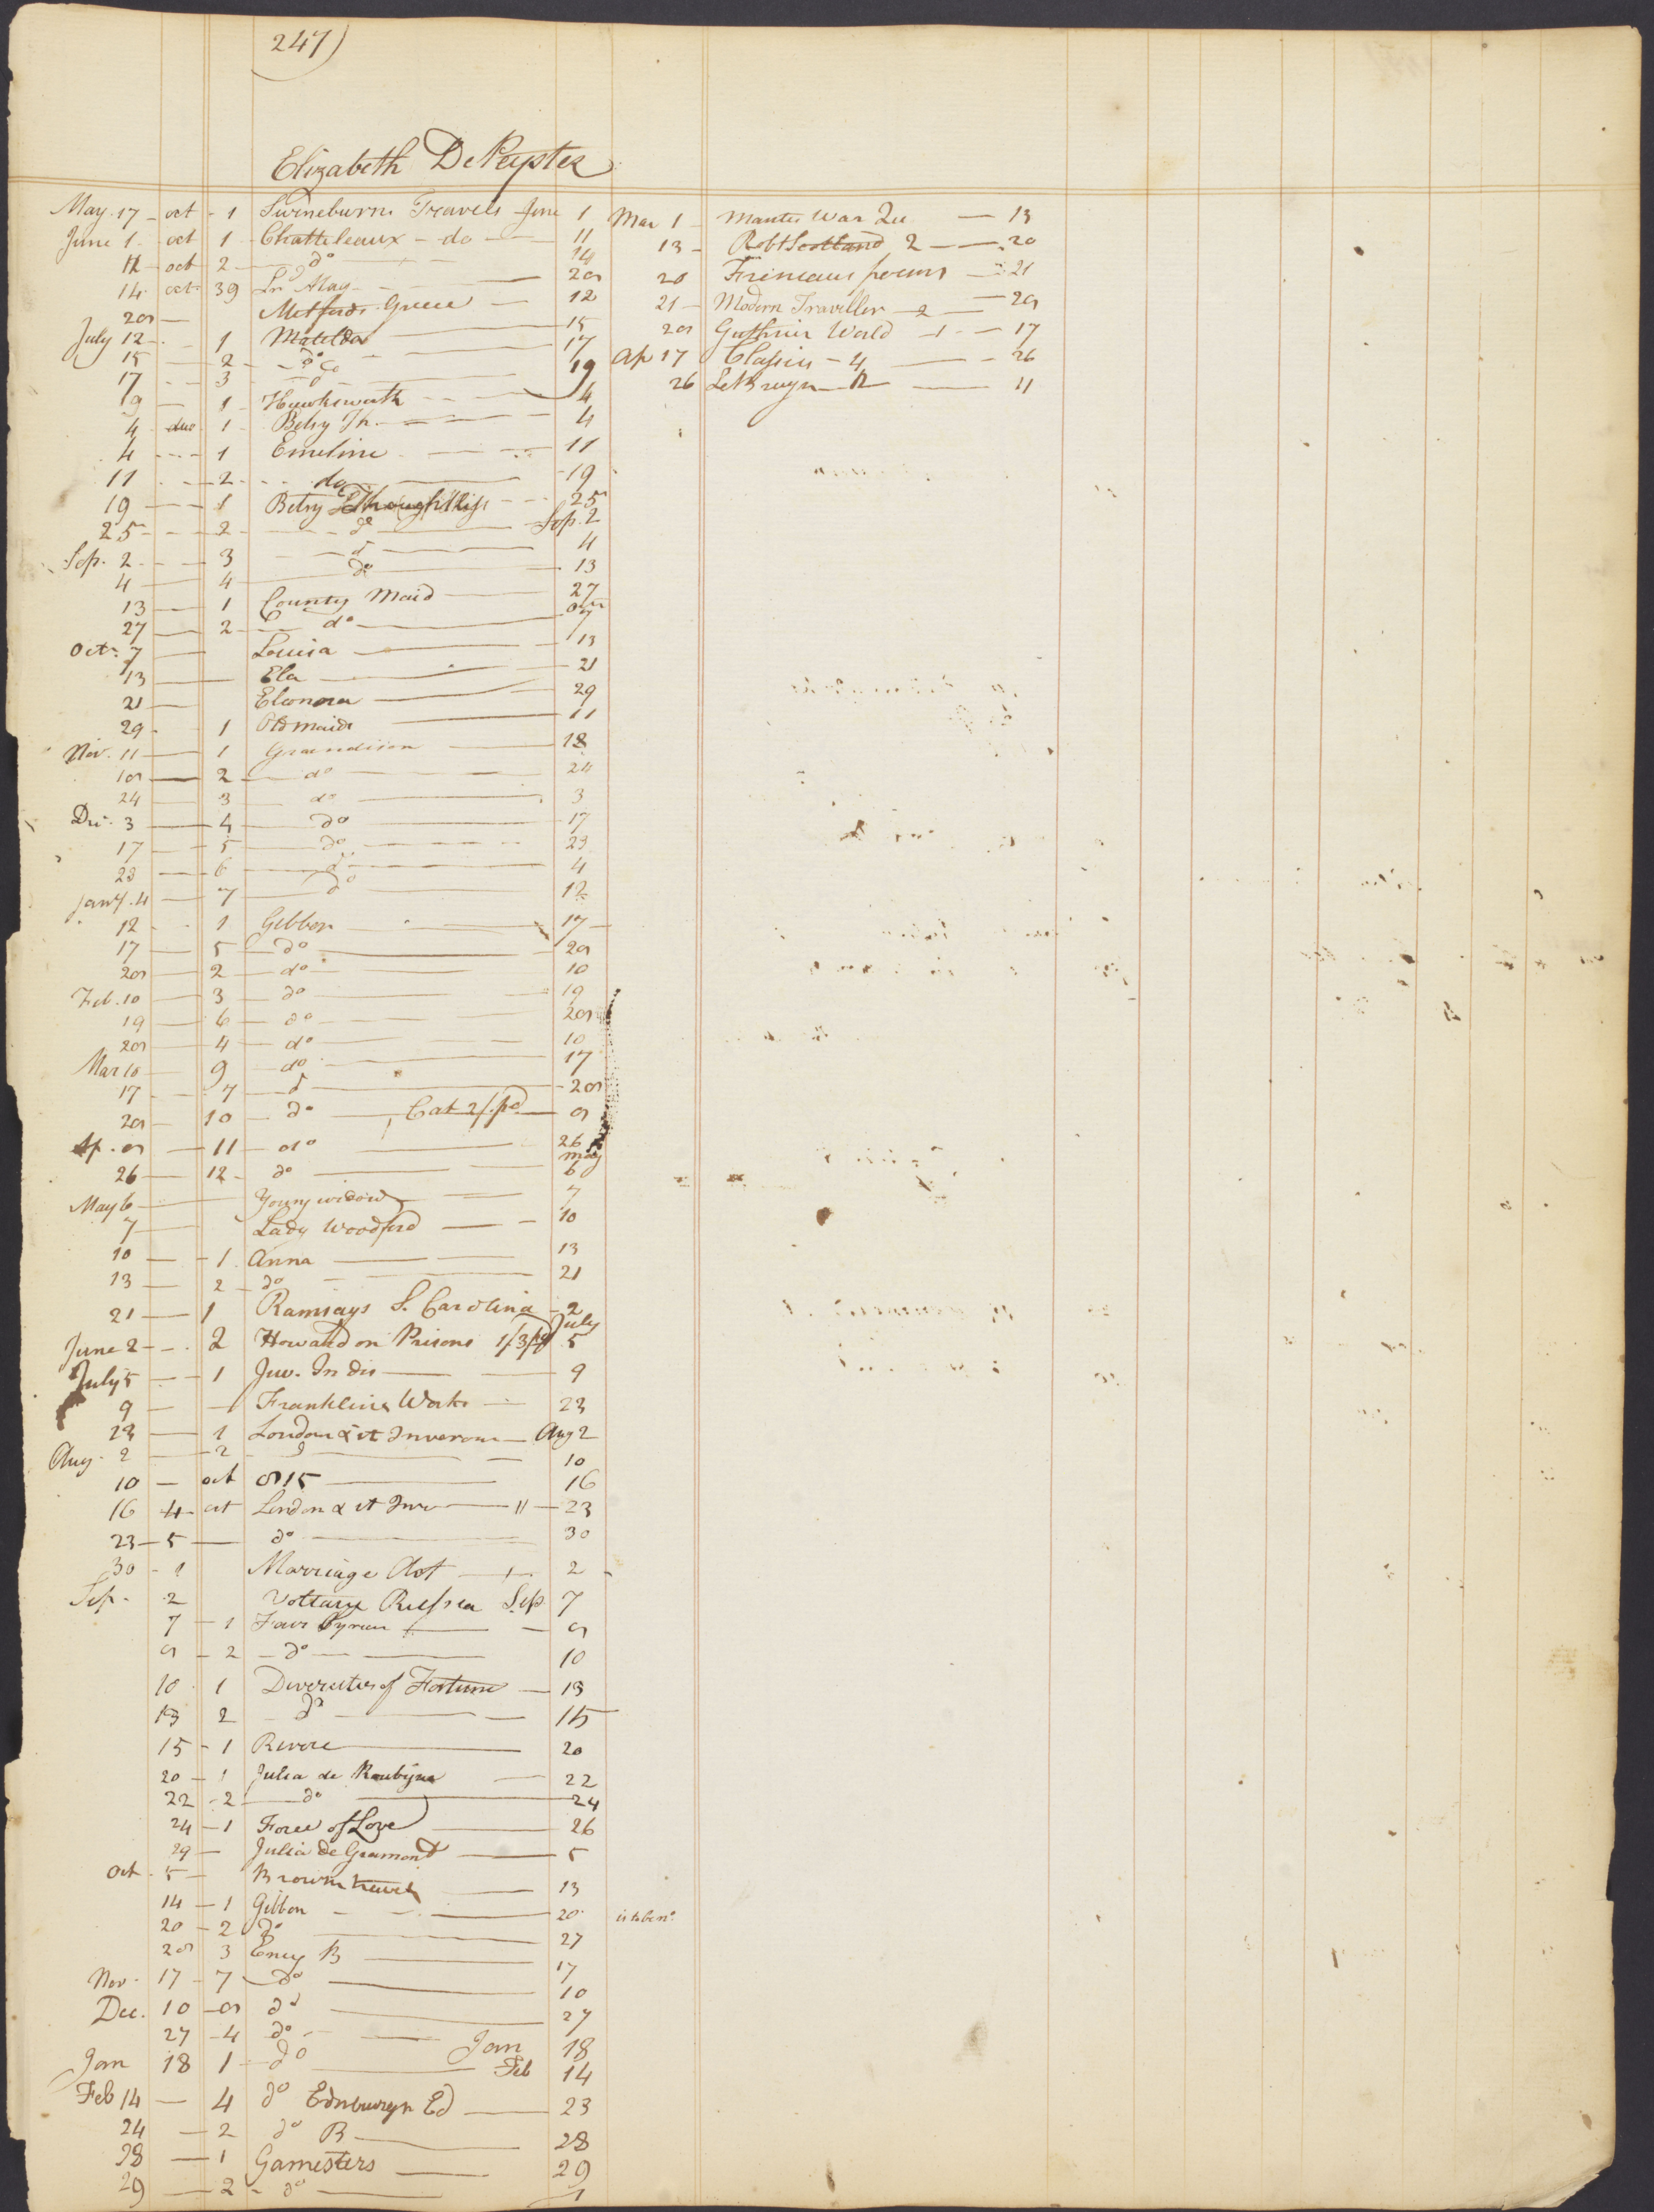 247)
Elizabeth DePeyster
May. 17 - oct - 1 Swineburns Travels June 1
June 1 - oct 1 - Chatteleaux - do 11
12 - oct 2 - do 14
14 - oct 39 Ln Mag 28
28 Metfords Greece 12
July 12 - 1 Matilda 15
15 - 2 - do 17
17 - 3 - do 19
19 - 1 - Hawksworth 4
4 duo 1 - Betsy Th. 4
4 - 1 Emeline 11
11 - 2 - do 19
19 - 1 Betsy Thoughtless 25
25 - 2 - do Sep. 2
Sep. 2 - 3 - do 4
4 - 4 do 13
13 - 1 County Maid 27
27 - 2 - do 7
Octr. 7 Louisa 13
13 Ela 21
21 Elonora 29
29 - 1 Old maids 11
Nov. 11 - 1 Grandison 18
18 - 2 - do 24
24 - 3 do 3
De. 3 - 4 do 17
17 - 5 do 23
23 - 6 - do 4
Jany. 4 - 7 do 12
12 - 1 Gibbon 17
17 - 5 - do 28
28 - 2 - do 10
Feb. 10 - 3 - do 19
19 - 6 - do 28
28 - 4 - do 10
Mar 10 - 9 - do 17
17 - 7 - do 28
28 - 10 - do Cat 2/. pd 8
Ap. 8 - 11 - do 26
26 - 12 - do may 6
May 6 Young widow 7
7 Lady Woodford 10
10 - 1 Anna 13
13 - 2 - do 21
21 - 1 Ramsays S. Carolina - 2
June 2 - 2 Howard on Prisons 1/3 pd July 5
July 5 - 1 Juv. In dis 9
9 Franklins Works 23
23 - 1 London & it Inverons Aug 2
Aug. 2 - 2 - do 10
10 - oct 815 16
16 4 - oct London & it Inv 11 - 23
23 - 5 do 30
30 - 1 Marriage Act 2
Sep. 2 Voltairs Russia Sep 7
7 - 1 Fair Syrian 8
8 - 2 - do 10
10 1 Diversites of Fortune 13
13 2 - do 15
15 - 1 Revere 20
20 - 1 Julia de Roubigne 22
22 - 2 do 24
24 - 1 Force of Love 26
29 Julia de Gramont 5
Oct. 5 - Browns travels 13
14 - 1 Gibbon 20
20 - 2 do 27
28 3 Ency B 17
Nov. 17 - 7 do 10
Dec. 10 - 8 do 27
27 - 4 do Jan 18
Jan 18 1 - do Feb 14
Feb 14 - 4 do Ednburgh Ed 23
24 - 2 do B 28
28 - 1 Gamesters 29
29 - 2 - do 1
Mar 1 - Mantes War 13
13 - Robt Scotland 2 20
20 Freneaus poems 21
21 - Modern Traveller 2 28
28 Guthries World 1 - 17
Ap 17 Classics - 4 26
26 LeBruyn 11